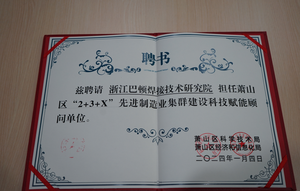 聘书
兹聘请 浙江巴顿焊接技术研究院 担任萧山
区“2+3+X”先进制造业集群建设科技赋能顾
问单位。
萧山区科学技术局
萧山区经济和信息化局
二〇二四年一月四日